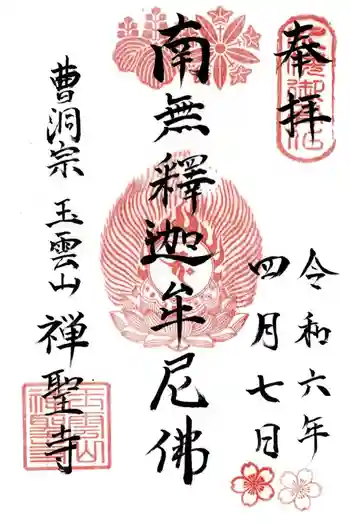 奉拝
令和六年
四月七日
南無釋迦牟尼佛
曹洞宗 玉雲山 禅聖寺